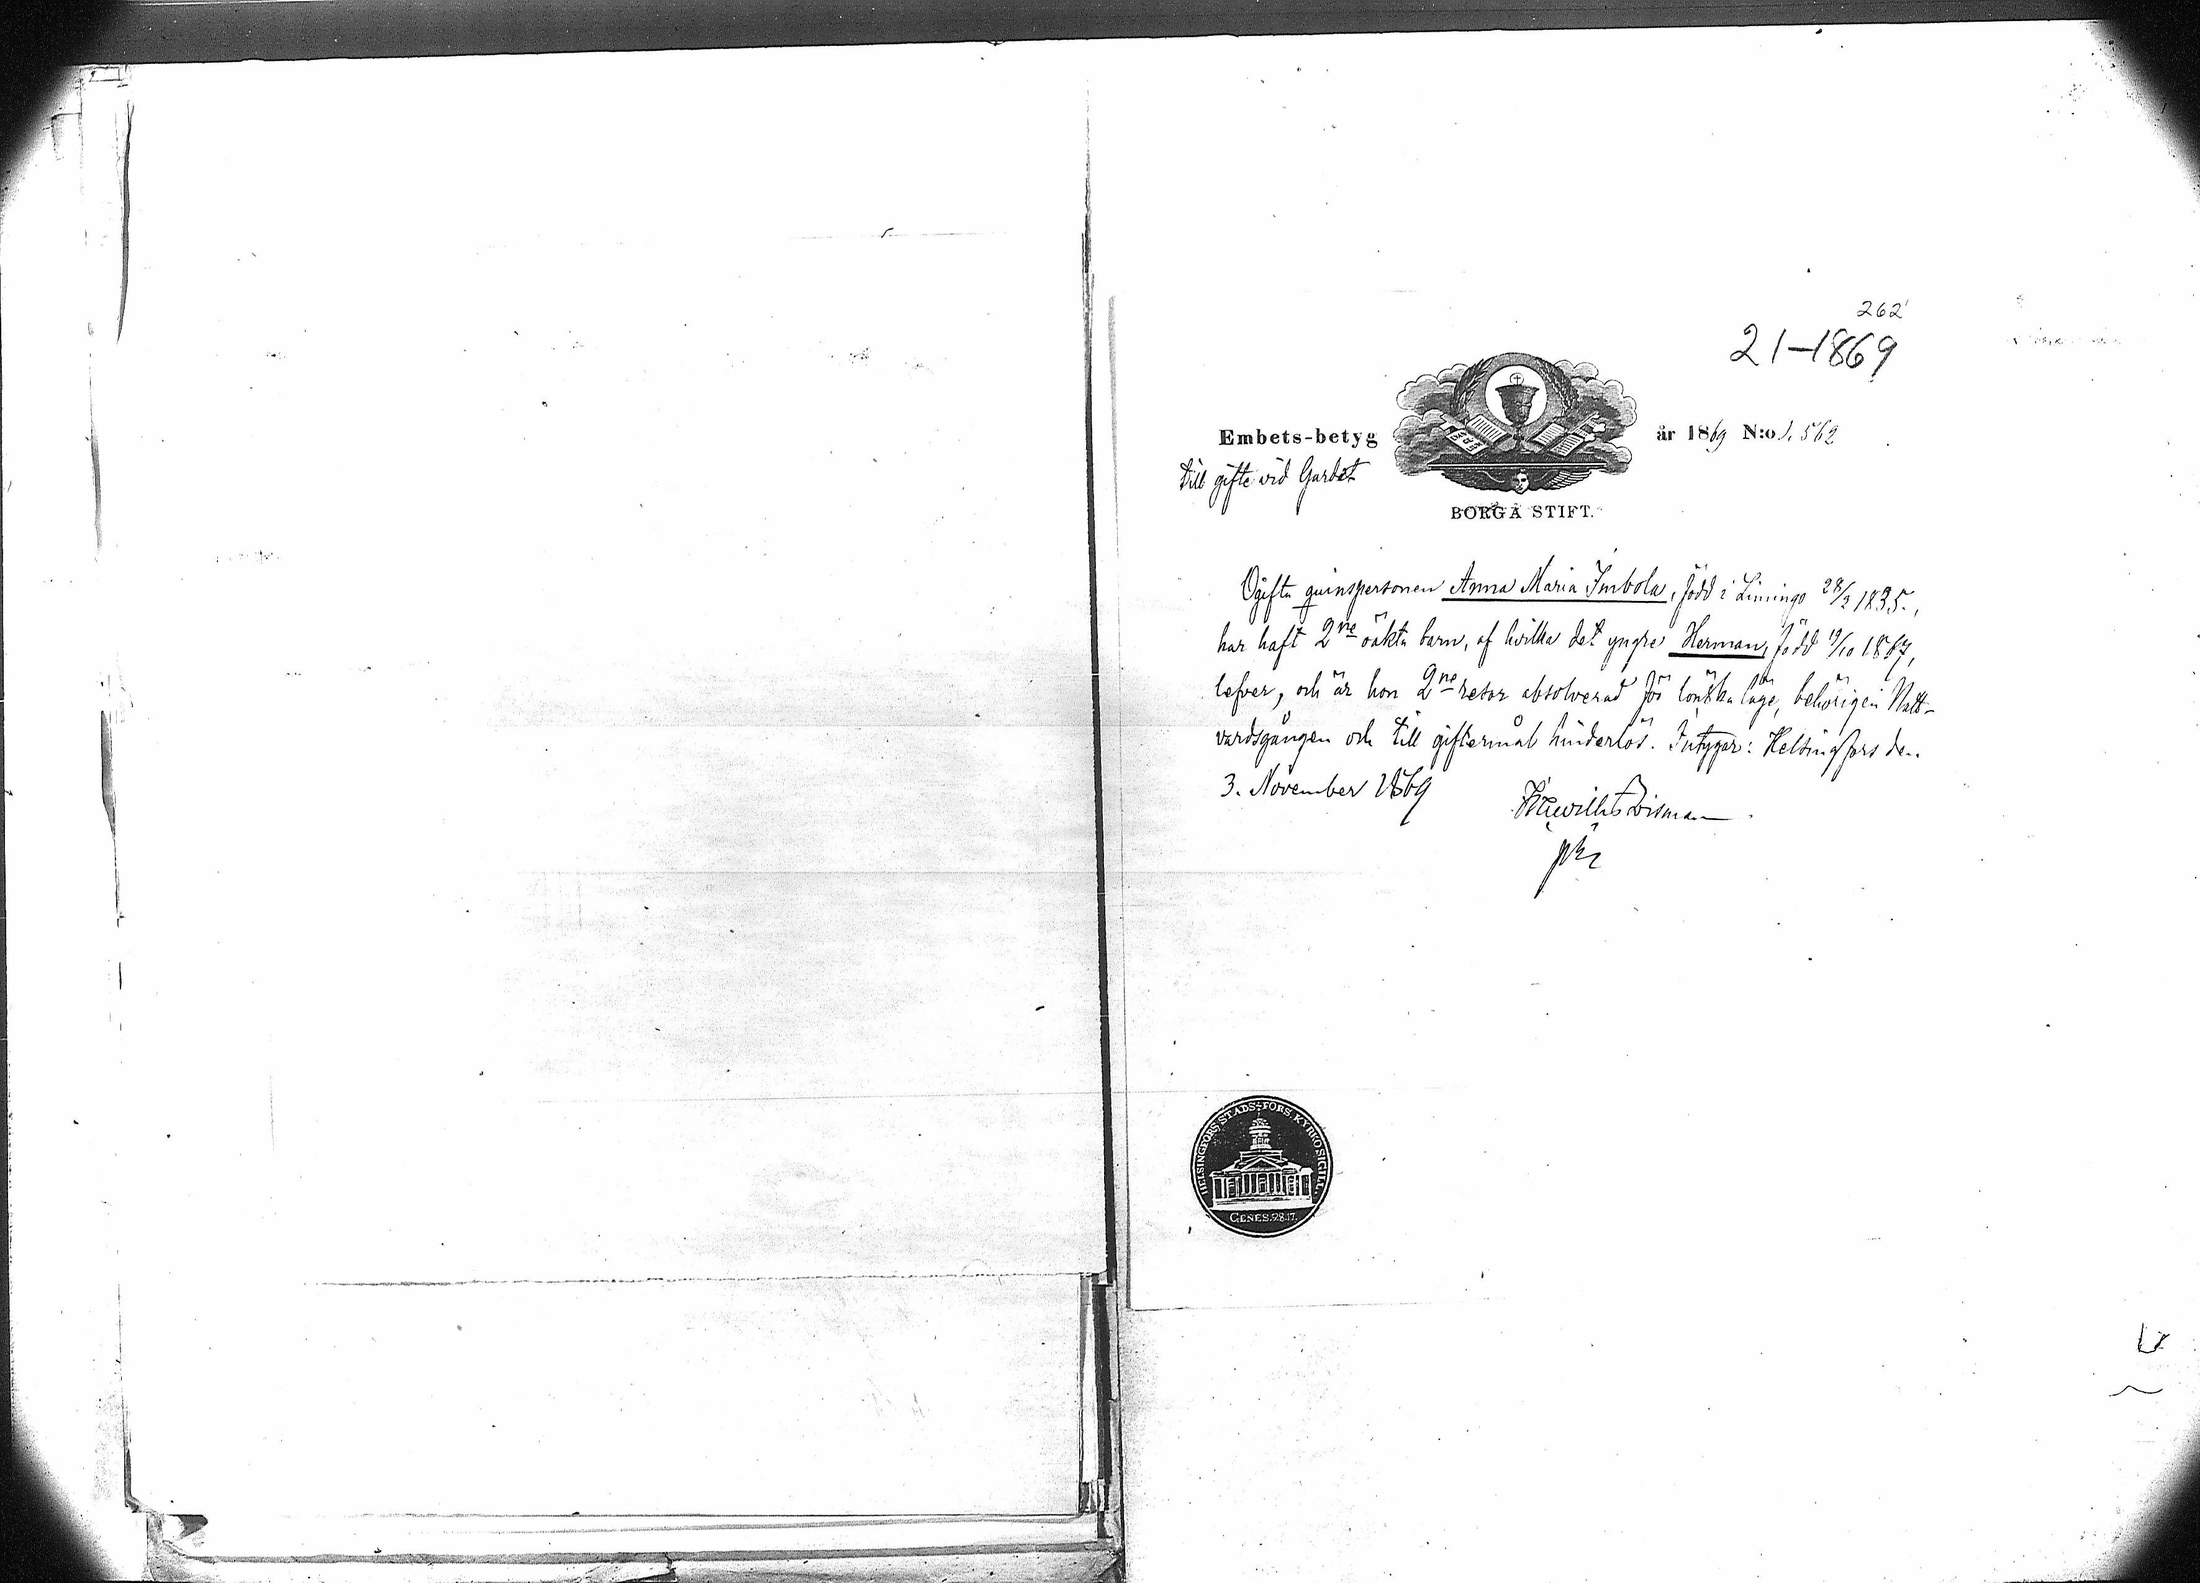 262
21–1869
Embets-betyg
år 1869 N:o 1.562
till gifte vid Gardet
BORGÅ STIFT.
Ogifta qvinspersonen Anna Maria Imbola, född i Limingo 28/2 1835.,
har haft 2ne oäkta barn, af hvilka det yngre Herman, född 19/10 1867,
lefver, och är hon 2ne resor absolverad för lönska läge, behörigen Natt-
vardsgången och till giftermål hinderlös. Intygar: Helsingfors den
3. November 1869
HELSINGFORS STADS-FÖRS. KYRKO SIGILL.
GENES. 28. 17.